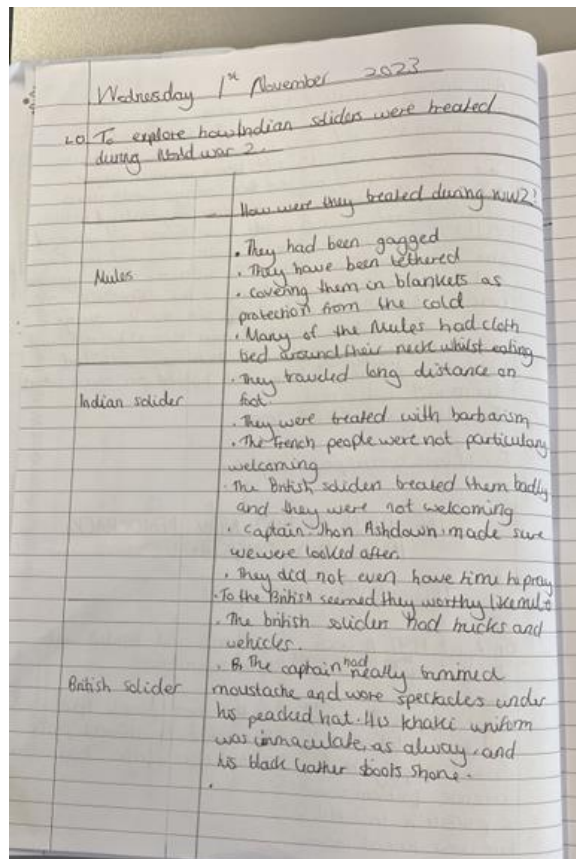 Wednesday 1st November 2023
LO To explore how Indian soliders were treated
during World war 2.
How were they treated during WW2?
Mules
• They had been gagged
• They have been tethered
• covering them in blankets as
protection from the cold
• Many of the Mules had cloth
tied around their neck whilst eating
Indian solider
• They traveled long distance on
foot.
• They were treated with barbarism
• The french people were not particulary
welcoming
• The British soliders treated them badly
and they were not welcoming
• Captain Jhon Ashdown made sure
we were looked after.
• They did not even have time to pray
• To the British seemed they worthy like
• The british soliders had trucks and
vehicles.
British solider
• The captain had neatly trimmed
moustache and wore spectacles under
his peacked hat. His khaki uniform
was immaculate, as alway, and
his black leather boots shone.